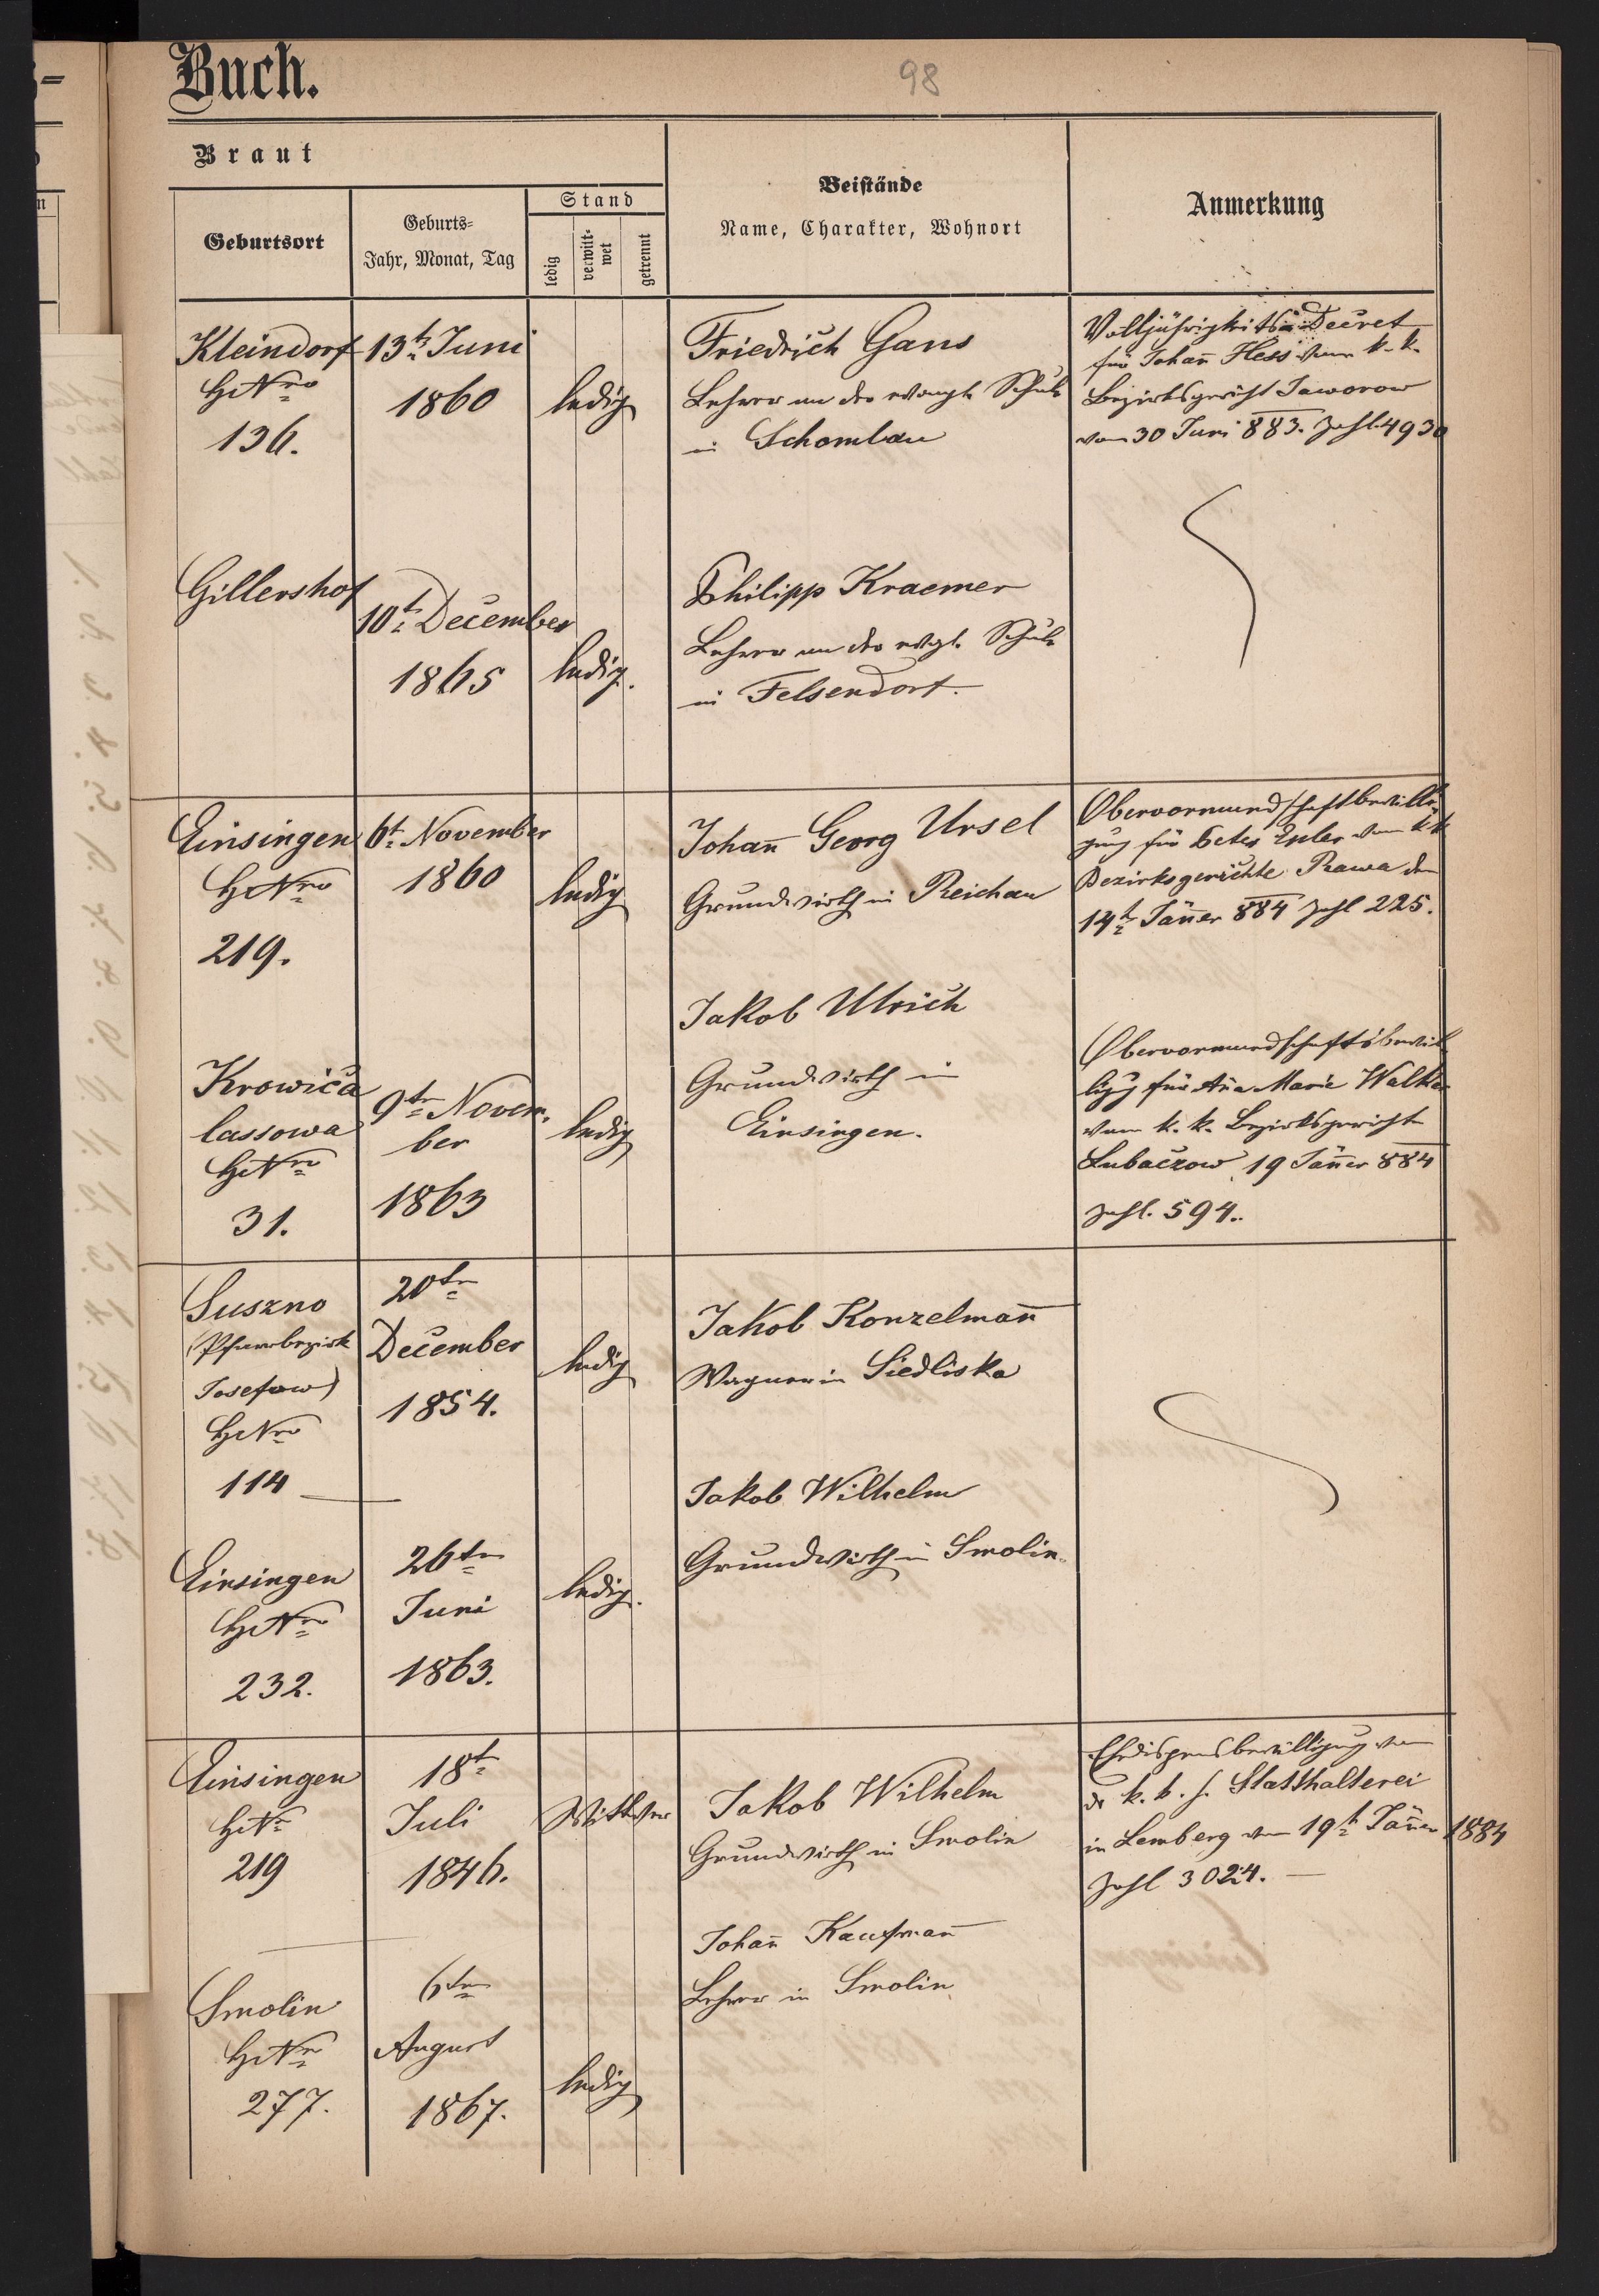 Buch.
98
Braut
Beistände
Name, Charakter, Wohnort
Anmerkung
Geburtsort
Geburts-
Jahr, Monat, Tag
Stand
ledig
verwitt-
wet
getrennt
Kleindorf
HNro
136.
13t Juni
1860
ledig
Friedrich Gans
Lehrer an der evangl. Schule
in Schomlau
Volljährigkeits-Decret
für Johan̄ Hess vom k. k.
Bezirksgericht Jaworow
vom 30 Juni 883. Zahl 4930
Gillershof
10t December
1865
ledig.
Philipp Kraemer
Lehrer an der evgl. Schule
in Felsendorf.
Einsingen
HNro
219.
6t November
1860
ledig
Johan̄ Georg Ursel
Grundwirth in Reichau
Obervormundschaftbewilli-
gung für Peter Euler vom k k
Bezirksgerichte Rawa den
14t Jän̄er 884 Zahl 225.
Krowica
lassowa
HNro
31.
9ten Novem.
ber
1863
ledig
Jakob Ulrich
Grundwirth in
Einsingen.
Obervormundschaftsbewil
ligg für An̄a Maria Walter
vom k. k. Bezirksgericht
Lubaczow 19 Jän̄er 884
Zahl. 594..
Suszno
(Pfarrbezirk
Josefow)
HNro
114
20ten
December
1854.
ledig
Jakob Konzelman̄
Wagner in Siedliska
Einsingen
HNro
232.
26ten
Juni
1863.
ledig.
Jakob Wilhelm
Grundwirth in Smolin.
Einsingen
HNr
219
18t
Juli
1846.
Wittwer
Jakob Wilhelm
Grundwirth in Smolin
Ehedispensbewilligung von
der k. k. Statthalterei
in Lemberg vom 19t Jän̄er 1884
Zahl 3024.
Smolin
HNro
277.
6ten
August
1867.
ledig
Johan̄ Kaufman̄
Lehrer in Smolin